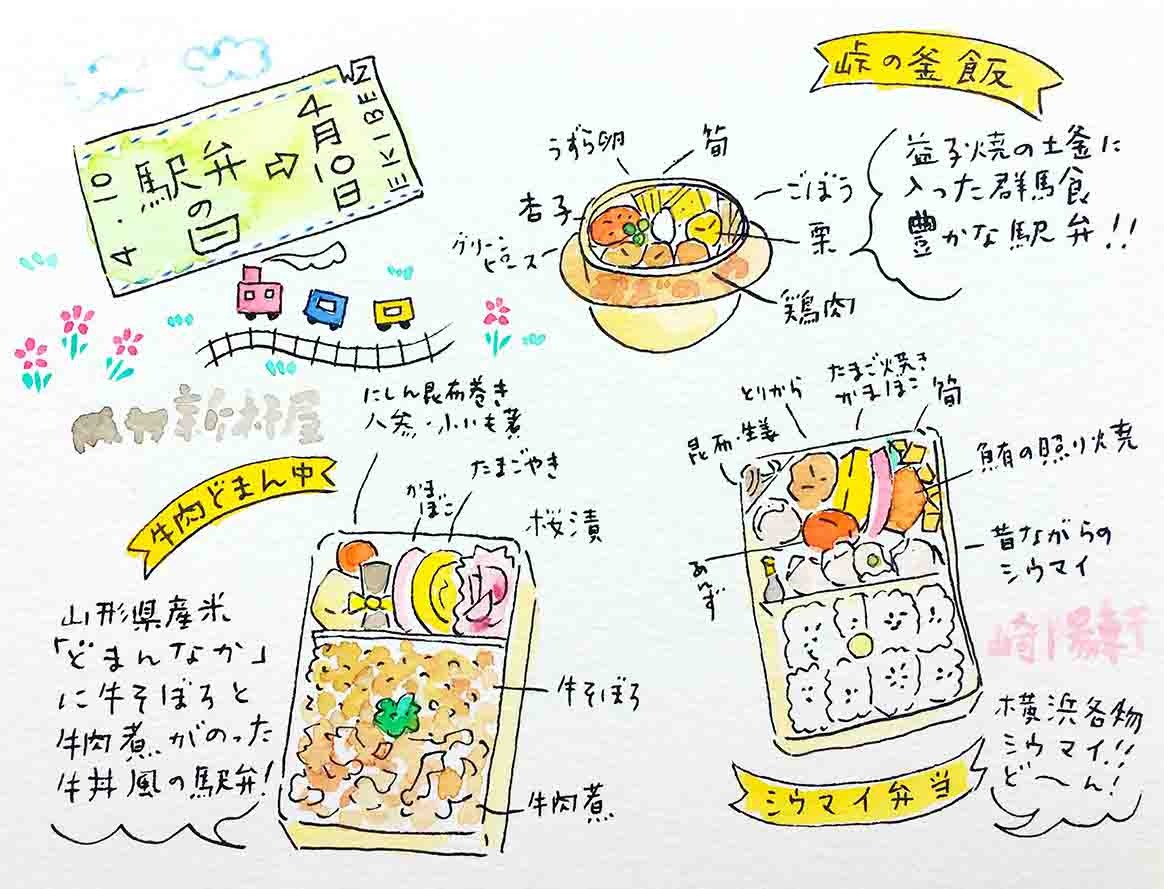 4.10
駅弁
の
日
⇨
4月10日
EKIBEN
峠の釜飯
うずら卵
筍
杏子
ごぼう
グリーン
ピース
栗
鶏肉
益子焼の土釜に
入った群馬食
豊かな駅弁!!
新杵屋
牛肉どまん中
にしん昆布巻き
人参・小いも煮
かま
ぼこ
たまごやき
桜漬
山形県産米
「どまんなか」
に牛そぼろと
牛肉煮がのった
牛丼風の駅弁!
牛そぼろ
牛肉煮
昆布・生姜
とりから
たまご焼き
かまぼこ
筍
鮪の照り焼
あんず
昔ながらの
シウマイ
崎陽軒
横浜名物
シウマイ!!
ど〜ん!
シウマイ弁当